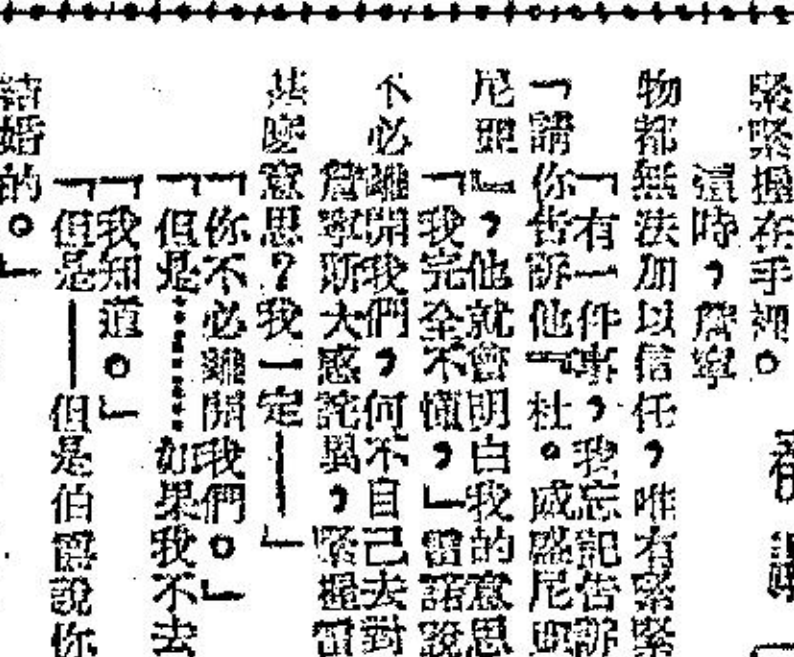 緊緊握在手裡。
這時,詹寧
物都無法加以信任,唯有緊緊
「有一件事,我忘記告訴
「請你告訴他『杜。威盛尼
尼亞』,他就會明白我的意思
「我完全不懂,」雷諾說
不必離開我們,何不自己去對
詹寧斯大感詫異,緊握雷
甚麼意思?我一定——」
「你不必離開我們。」
「但是……如果我不去
「我知道。」
「但是——但是伯爵說你
結婚的。」